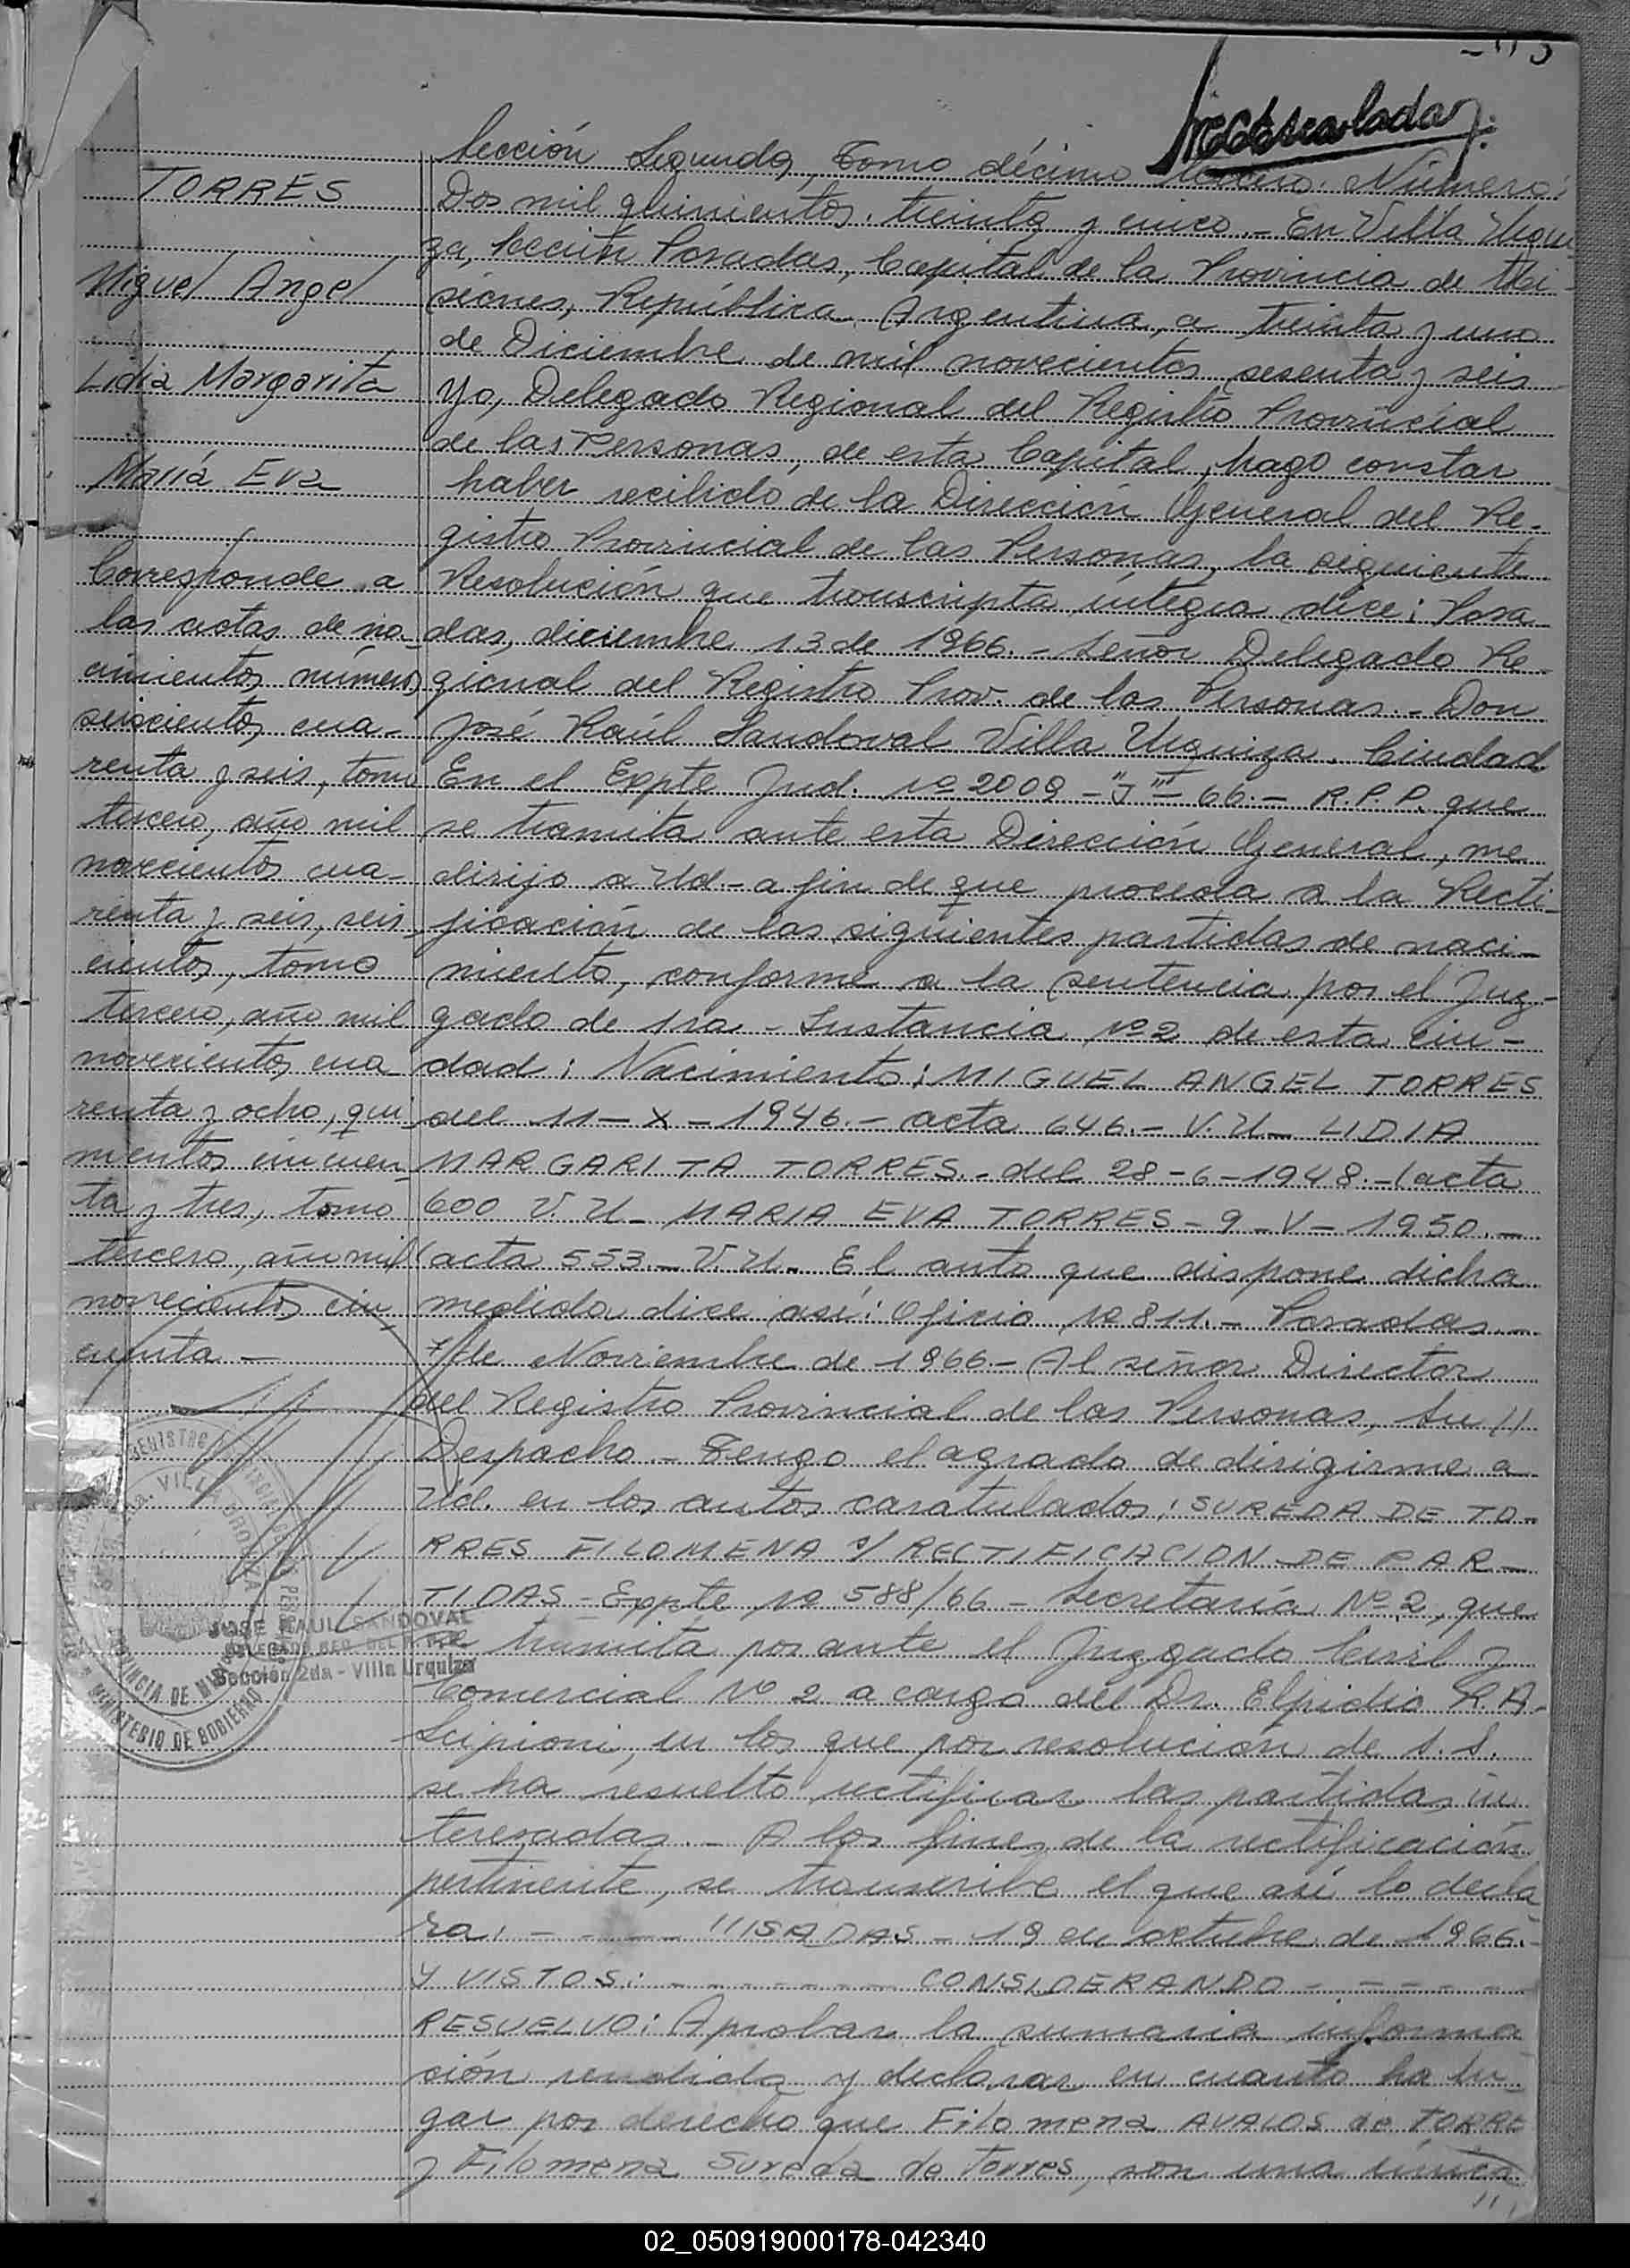 Sección Segunda, Tomo décimo Número:
Dos mil quinientos treinta y cinco.- En Villa Urqui
za, Sección Posadas, Capital de la Provincia de Mi-
siones, República Argentina, a treinta y uno
de Diciembre de mil novecientos sesenta y seis
Yo, Delegado Regional del Registro Provincial
de las Personas, de esta Capital, hago constar
haber recibido de la Dirección General del Re-
gistro Provincial de las Personas, la siguiente
Resolución que transcripta íntegra dice: Posa
das, diciembre 13 de 1966.- Señor Delegado Re-
gional del Registro Prov. de las Personas.- Don
José Raúl Sandoval Villa Urquiza. Ciudad.
En el Expte Jud. Nº 2009 - "J" - 66.- R.P.P. que
se tramita ante esta Dirección General, me
dirijo a Ud.- a fin de que proceda a la Recti-
ficación de las siguientes partidas de naci-
miento, conforme a la sentencia por el Juz-
gado de 1ra - Instancia Nº 2 de esta ciu-
dad: Nacimiento: MIGUEL ANGEL TORRES
del 11-X-1946.- acta 646.- V.U- LIDIA
MARGARITA TORRES.- del 28-6-1948.- (acta
600 V.U- MARIA EVA TORRES - 9-V-1950.-
(acta 553.- V.U- El auto que dispone dicha
medida dice así: Oficio Nº 811.- Posadas.-
7/de Noviembre de 1966.- Al señor Director
del Registro Provincial de las Personas, Su //
Despacho - Tengo el agrado de dirigirme a
Ud. en los autos caratulados: SUREDA DE TO-
RRES FILOMENA s/ RECTIFICACION DE PAR-
TIDAS - Expte Nº 588/66 - Secretaría Nº 2, que
se tramita por ante el Juzgado Civil y
Comercial Nº 2 a cargo del Dr. Elpidio R.A.
Scipioni, en los que por resolución de S.S.
se ha resuelto rectificar las partidas in
teresadas.- A los fines de la rectificación
pertinente, se transcribe el que así lo decla
ra: - - - - - ///SADAS - 19 de octubre de 1966.-
Y VISTOS: - - - - - - - - CONSIDERANDO - - - - -
RESUELVO: Aprobar la sumaria informa
ción rendida y declarar en cuanto ha lu-
gar por derecho que Filomena AVALOS de TORRE
y Filomena Sureda de Torres, son una única
//
TORRES
Miguel Angel
Lidia Margarita
María Eva
Corresponde a
las actas de na-
cimientos números
seiscientos cua-
renta y seis, tomo
tercero, año mil
novecientos cua-
renta y seis, seis
cientos, tomo
tercero, año mil
novecientos cua
renta y ocho, qui
nientos cincuen-
ta y tres, tomo
tercero, año mil
novecientos cin
cuenta -
JOSE RAUL SANDOVAL
DELEGADO REG. DEL
Sección 2da - Villa Urquiza
VILLA URQUIZA
PROVINCIA DE
MINISTERIO DE GOBIERNO
02_050919000178-042340